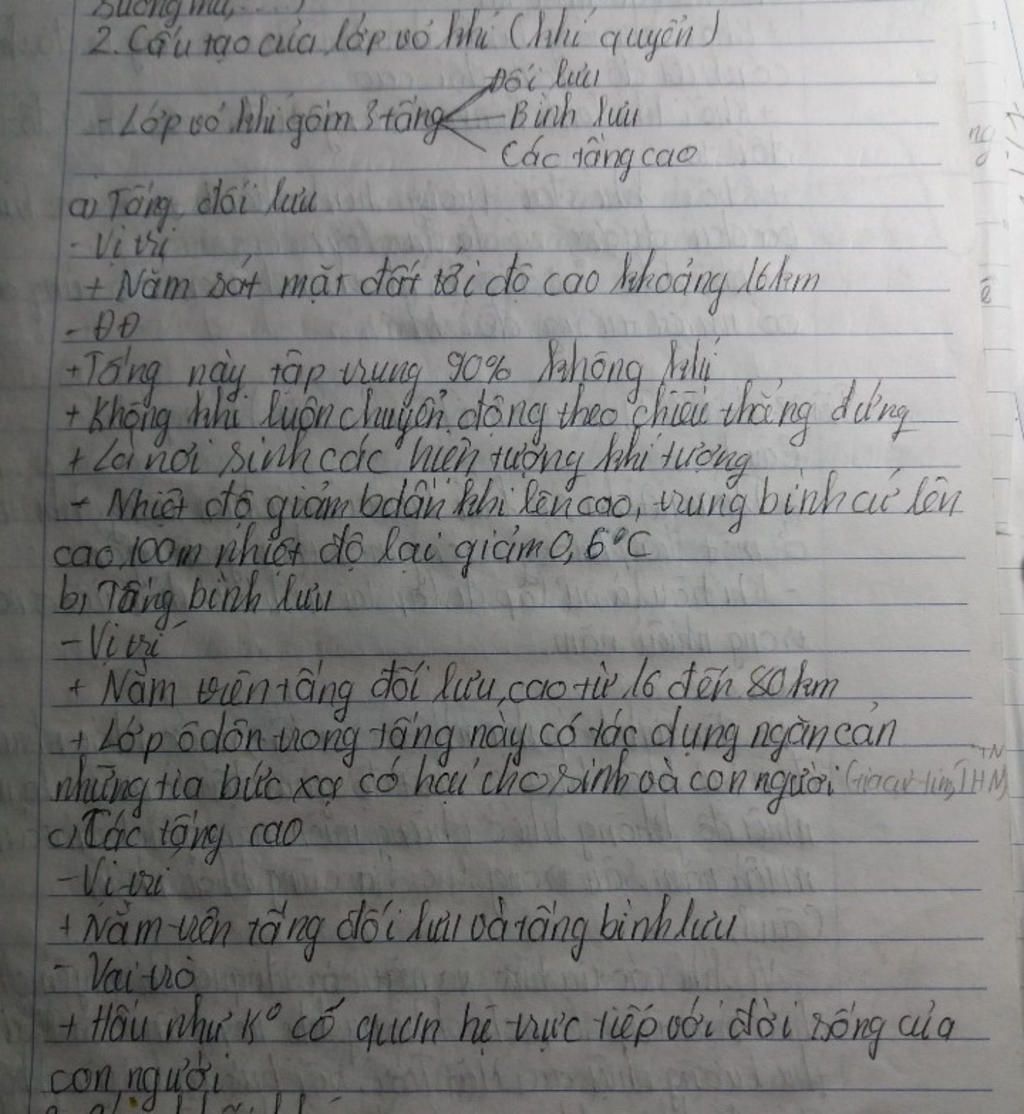 2. Cấu tạo của lớp vỏ khí (khí quyển)
Đối lưu
- Lớp vỏ khí gồm 3 tầng Bình lưu
Các tầng cao
a) Tầng đối lưu
- Vị trí
+ Nằm sát mặt đất tới độ cao khoảng 16km
- ĐĐ
+ Tầng này tập trung 90% không khí
+ Không khí luôn chuyển động theo chiều thẳng đứng
+ Là nơi sinh các hiện tượng khí tượng
+ Nhiệt độ giảm dần khi lên cao, trung bình cứ lên
cao 100m nhiệt độ lại giảm 0,6°C
b) Tầng bình lưu
- Vị trí
+ Nằm trên tầng đối lưu, cao từ 16 đến 80km
+ Lớp ôdôn trong tầng này có tác dụng ngăn cản
những tia bức xạ có hại cho sinh và con người (tia cực tím,
c) Các tầng cao
- Vị trí
+ Nằm trên tầng đối lưu và tầng bình lưu
- Vai trò
+ Hầu như K° có quan hệ trực tiếp với đời sống của
con người